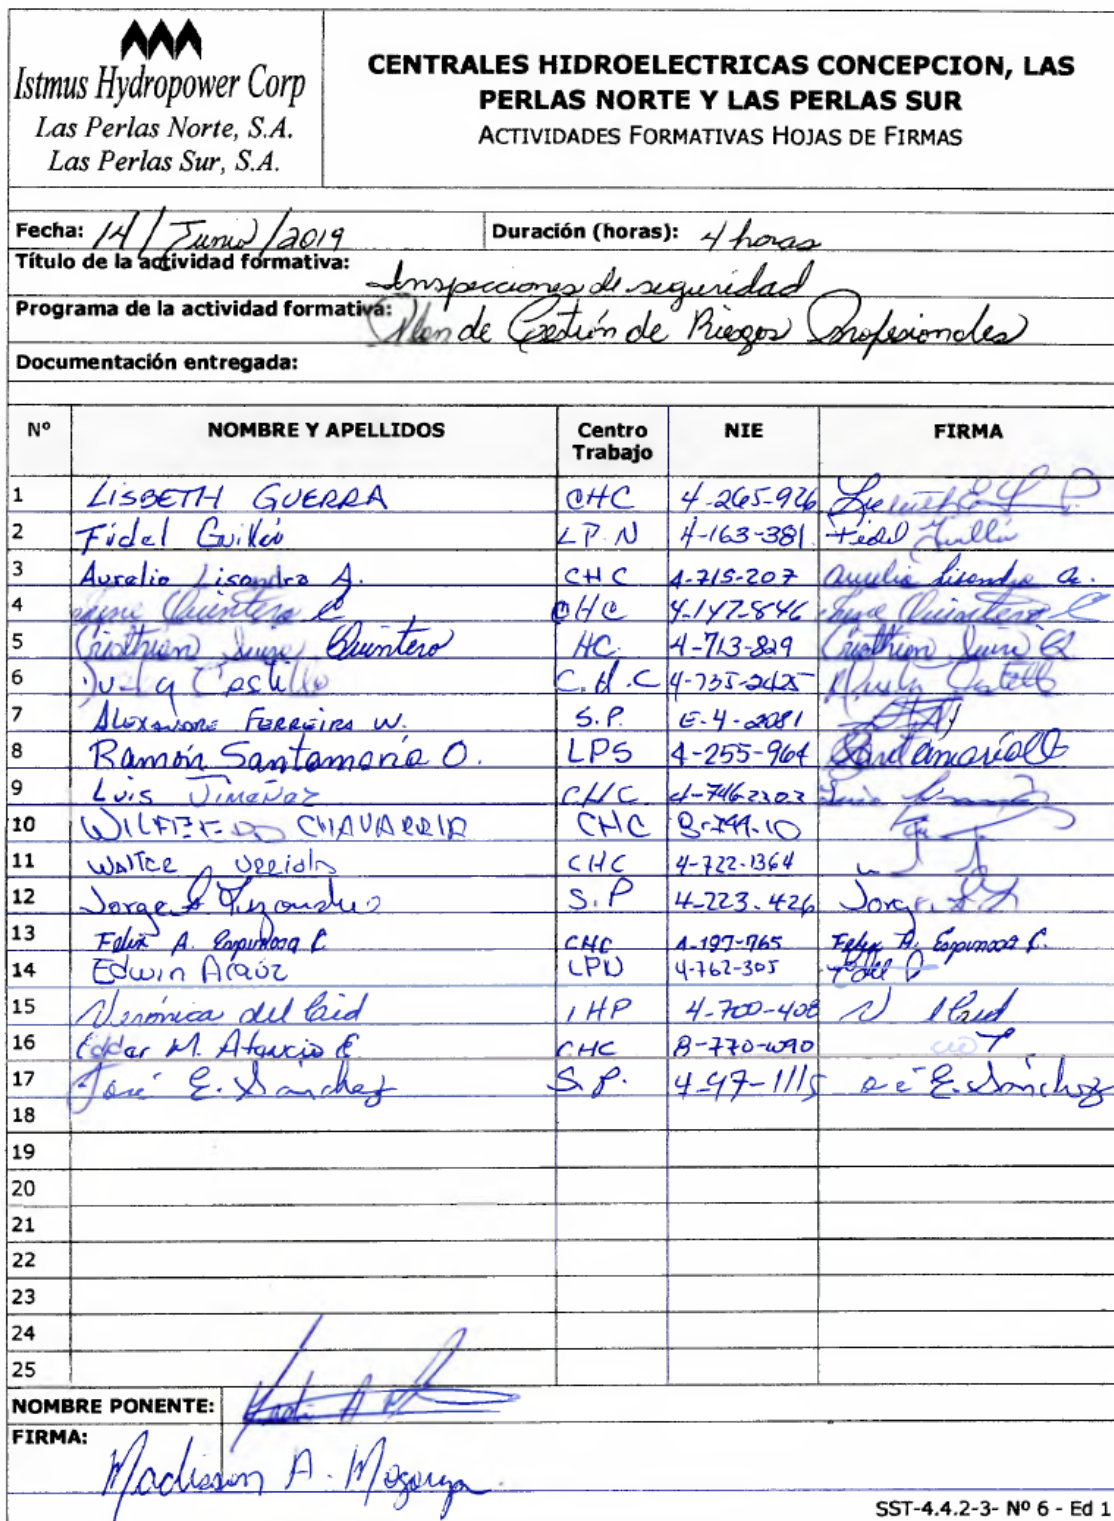 Istmus Hydropower Corp
Las Perlas Norte, S.A.
Las Perlas Sur, S.A.
CENTRALES HIDROELECTRICAS CONCEPCION, LAS
PERLAS NORTE Y LAS PERLAS SUR
ACTIVIDADES FORMATIVAS HOJAS DE FIRMAS
Fecha: 14/Junio/2019 Duración (horas): 4 horas
Título de la actividad formativa: Inspecciones de seguridad
Programa de la actividad formativa: Plan de Gestión de Riesgos Profesionales
Documentación entregada:
Nº NOMBRE Y APELLIDOS Centro Trabajo NIE FIRMA
1 LISBETH GUERRA CHC 4-265-926
2 Fidel Guillén L.P.N 4-163-381 Fidel Guillén
3 Aurelio Lisondro A. CHC 4-715-207 Aurelio Lisondro A.
4 Quintero CHC 4-147-846 Quintero
5 Cristhian Quintero HC 4-713-829 Cristhian
6 Castillo C.H.C 4-735-2425 Castillo
7 ALEXANDRE FERREIRA W. S.P. E-4-2081
8 Ramón Santamaría O. LPS 4-255-964 Santamaría
9 Luis Jimenez CHC 4-746-2303 Luis
10 WILFREDO CHAVARRIA CHC 8-744-10
11 WALTER CHC 4-722-1364
12 Jorge S.P 4-223-426 Jorge
13 Felix A. Espinosa C. CHC 4-197-765 Felix A. Espinosa C.
14 Edwin Araúz LPN 4-762-305
15 Verónica del Cid IHP 4-700-408
16 Eddar M. CHC 8-770-1090
17 José E. Sánchez S.P. 4-97-1115 E. Sánchez
18
19
20
21
22
23
24
25
NOMBRE PONENTE:
FIRMA: Madisson A.
SST-4.4.2-3- Nº 6 - Ed 1